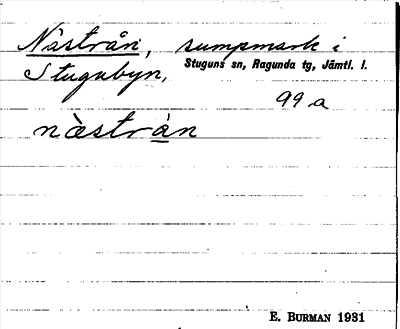 Nästrån, sumpmark i
Stugubyn, Stuguns sn, Ragunda tg, Jämtl. l.
99 a
næ̀strån
E. BURMAN 1931